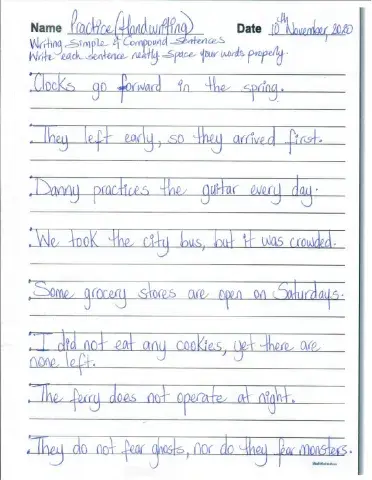 Name Practice (Handwriting) Date 10th November, 2020
Writing Simple & Compound Sentences
Write each sentence neatly. Space your words properly.
. Clocks go forward in the spring.
. They left early, so they arrived first.
. Danny practices the guitar every day.
. We took the city bus, but it was crowded.
. Some grocery stores are open on Saturdays.
. I did not eat any cookies, yet there are
none left.
. The ferry does not operate at night.
. They do not fear ghosts, nor do they fear monsters.